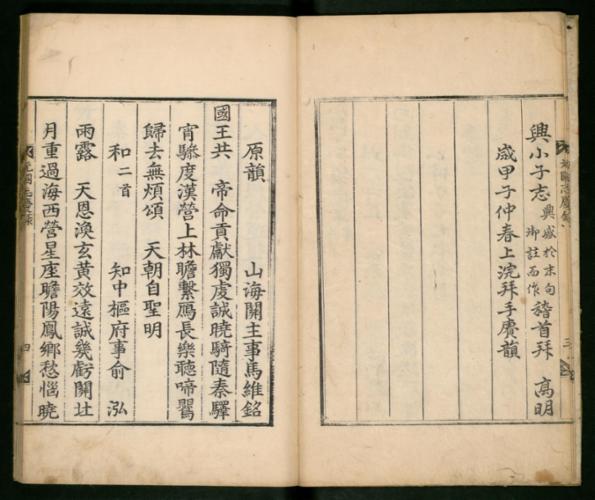 興小子志興感於末句御註而作稽首拜 高明
歲甲子仲春上浣拜手賡韻
三
原韻 山海關主事馬維銘
國王共 帝命貢獻獨虔誠曉騎隨秦驛
宵驂度漢營上林瞻繫鴈長樂聽啼鸎
歸去無煩頌 天朝自聖明
和二首 知中樞府事俞 泓
雨露 天恩渙玄黃效遠誠幾虧開
月重過海西營星座瞻陽鳳鄉愁惱曉
四